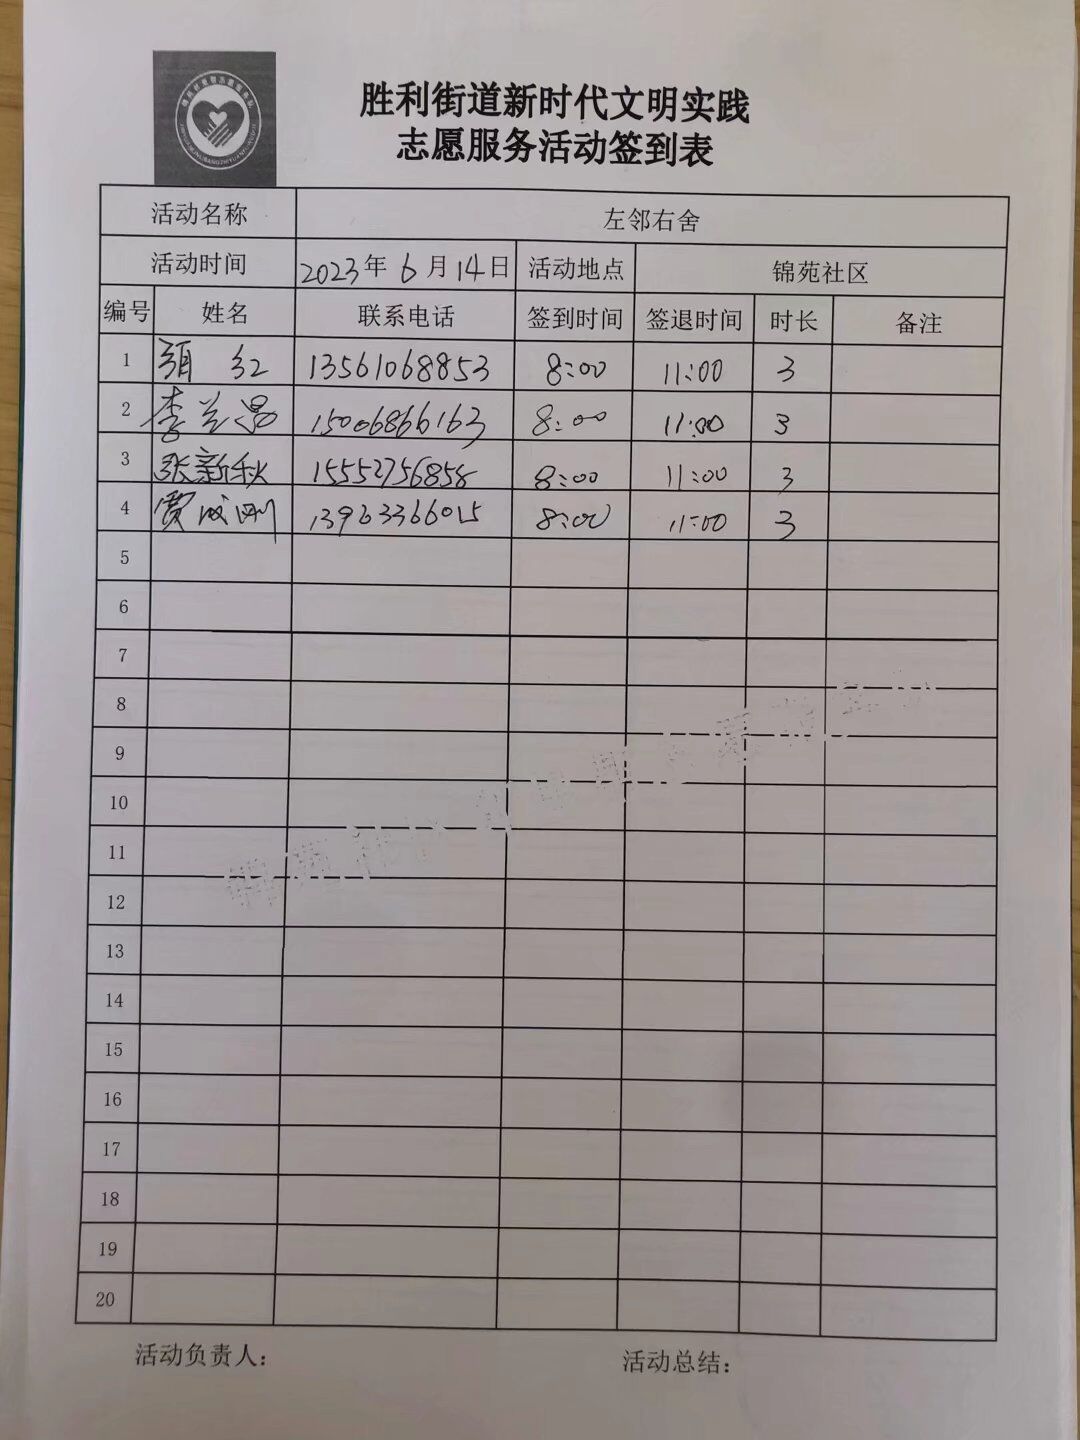 胜利街道新时代文明实践
志愿服务活动签到表
活动名称 左邻右舍
活动时间 2023年 6月14日 活动地点 锦苑社区
编号 姓名 联系电话 签到时间 签退时间 时长 备注
1 红 13561068853 8:00 11:00 3
2 李兰 15006866163 8:00 11:00 3
3 张新秋 15552756858 8:00 11:00 3
4 贾成刚 13963366015 8:00 11:00 3
5
6
7
8
9
10
11
12
13
14
15
16
17
18
19
20
活动负责人: 活动总结: